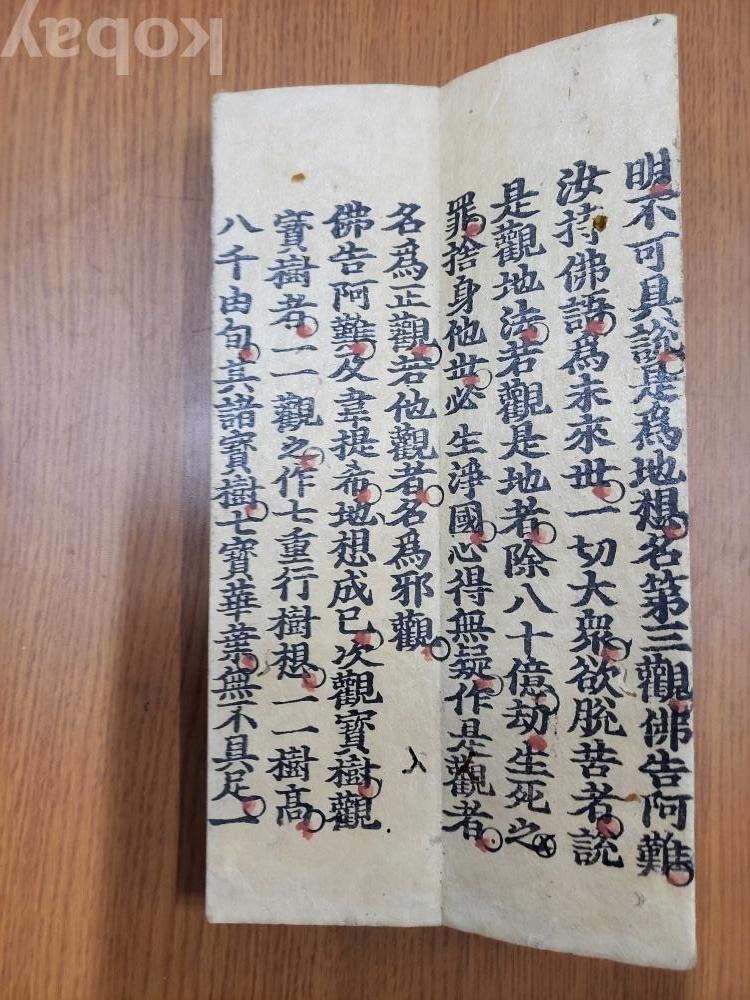 kobay
明不可具說是爲地想名第三觀佛告阿難
汝持佛語爲未來世一切大衆欲脫苦者說
是觀地法若觀是地者除八十億劫生死之
罪捨身他世必生淨國心得無疑作是觀者
名爲正觀若他觀者名爲邪觀
佛告阿難及韋提希地想成已次觀寶樹觀
寶樹者一一觀之作七重行樹想一一樹高
八千由旬其諸寶樹七寶華葉無不具足一